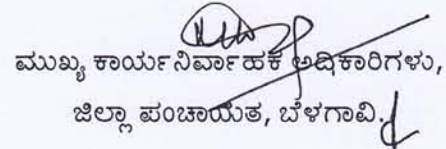 ಮುಖ್ಯ ಕಾರ್ಯನಿರ್ವಾಹಕ ಅಧಿಕಾರಿಗಳು,
ಜಿಲ್ಲಾ ಪಂಚಾಯತ, ಬೆಳಗಾವಿ.